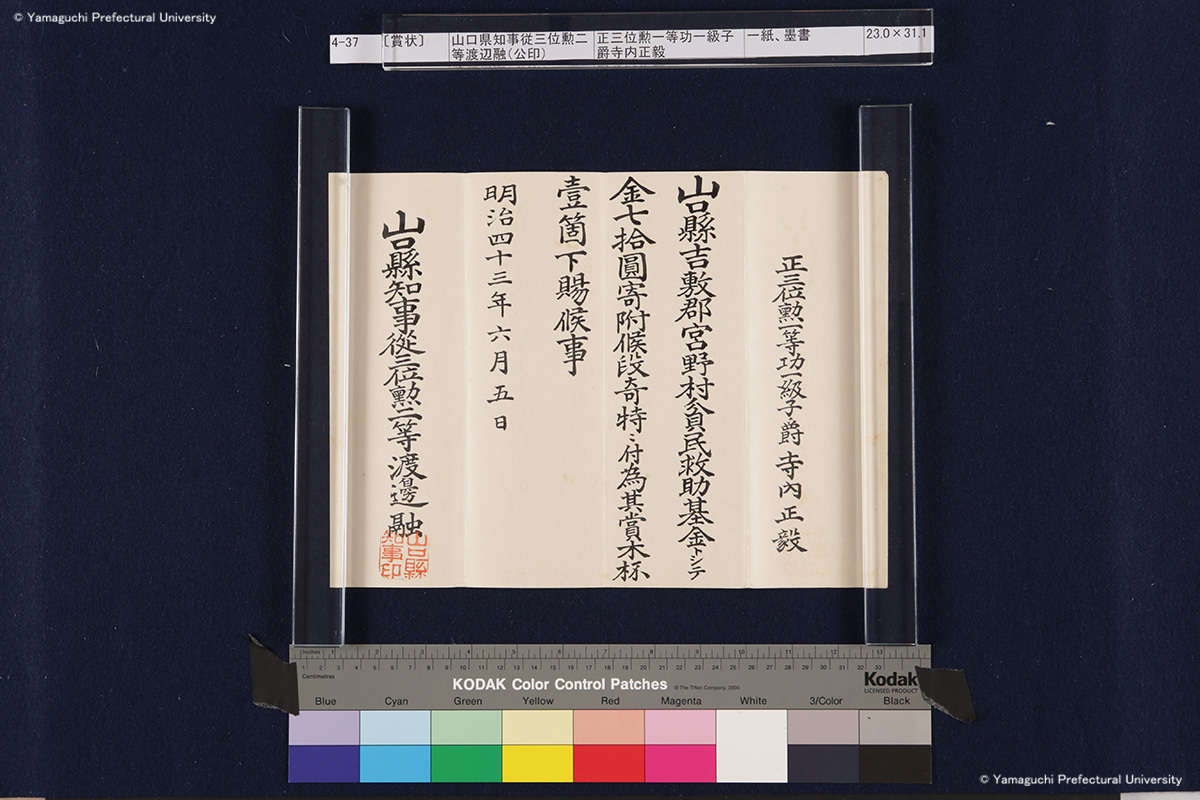 © Yamaguchi Prefectural University
4-37
〔賞状〕
山口県知事従三位勲二
等渡辺融(公印)
正三位勲一等功一級子
爵寺内正毅
一紙、墨書
23.0×31.1
正三位勲一等功一級子爵寺内正毅
山口縣吉敷郡宮野村貧民救助基金トシテ
金七拾圓寄附候段奇特ニ付為其賞木杯
壹箇下賜候事
明治四十三年六月五日
山口縣知事從三位勲二等渡邊融
山口縣
知事印
Inches 1 2 3 4 5 6 7 8 9 10 11 12 13
Centimetres 1 2 3 4 5 6 7 8 9 10 11 12 13 14 15 16 17 18 19 20 21 22 23 24 25 26 27 28 29 30 31 32 33
KODAK Color Control Patches
© The Tiffen Company, 2000
Kodak
LICENSED PRODUCT
Blue Cyan Green Yellow Red Magenta White 3/Color Black
© Yamaguchi Prefectural University